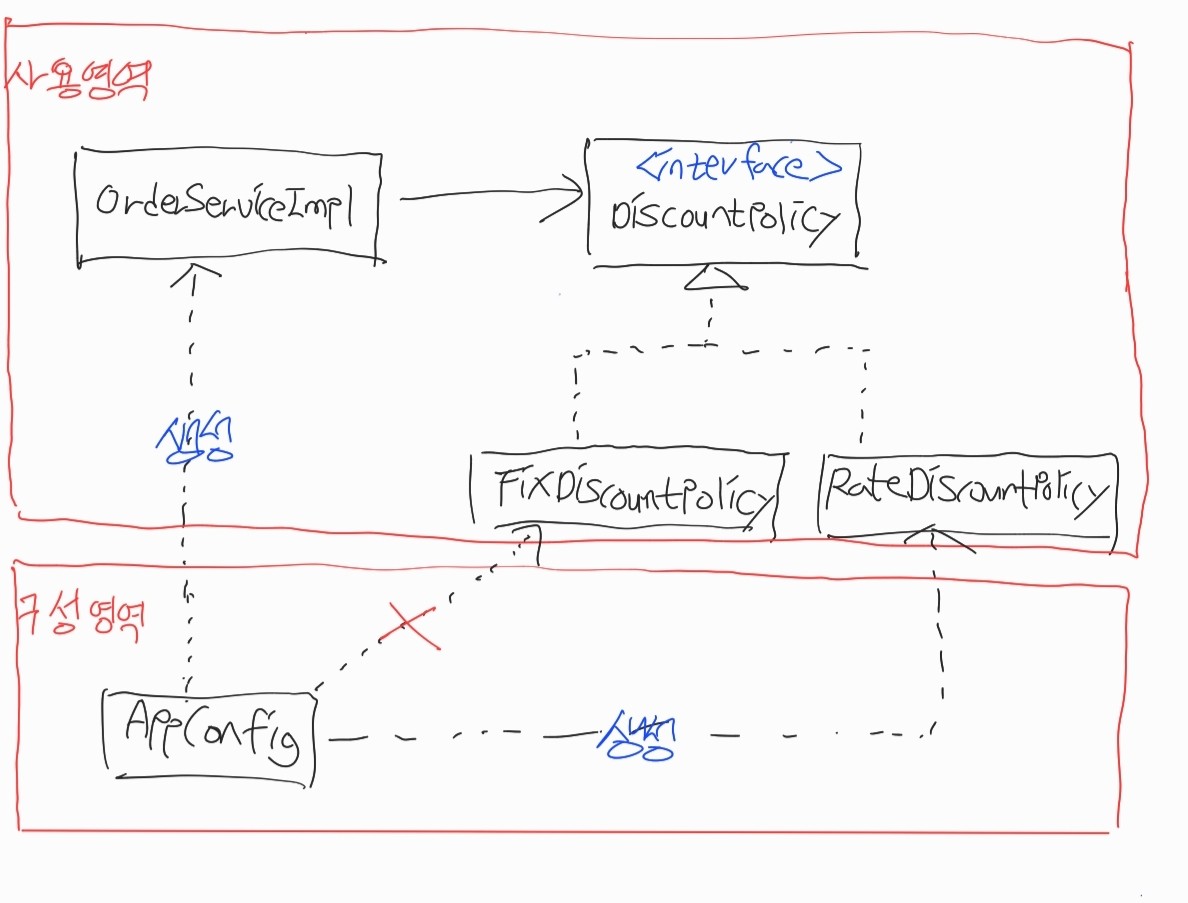 사용영역
OrderServiceImpl
<interface>
DiscountPolicy
생성
FixDiscountPolicy
RateDiscountPolicy
구성영역
AppConfig
생성